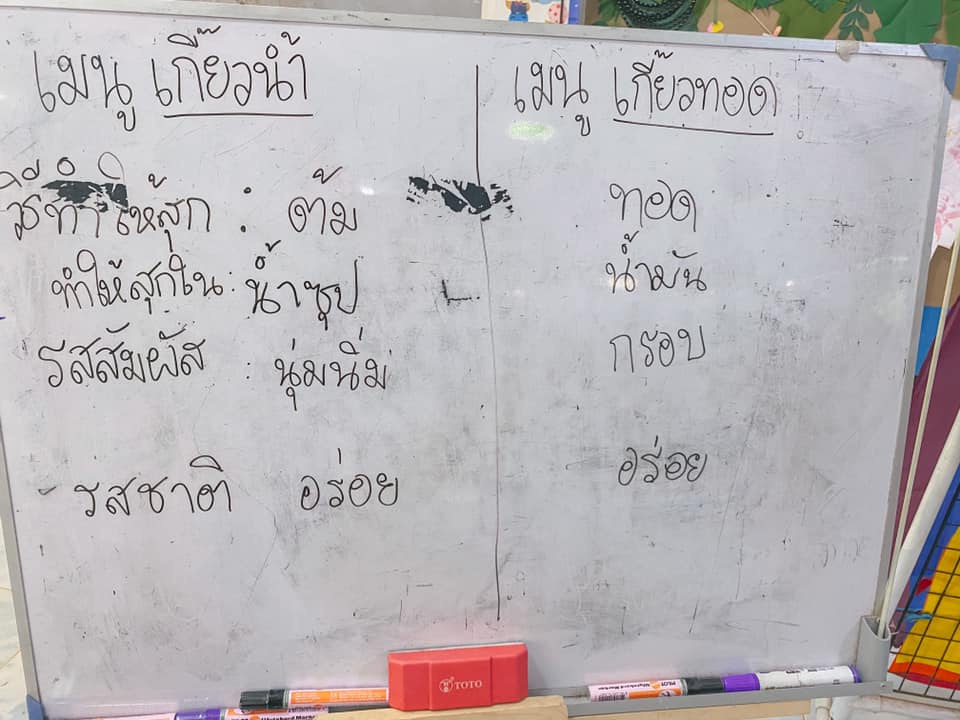 เมนู เกี๊ยวน้ำ
เมนู เกี๊ยวทอด
วิธีทำให้สุก : ต้ม
ทอด
ทำให้สุกใน : น้ำซุป
น้ำมัน
รสสัมผัส : นุ่มนิ่ม
กรอบ
- รสชาติ อร่อย
อร่อย
TOTO
PILOT
Wytebord Marker